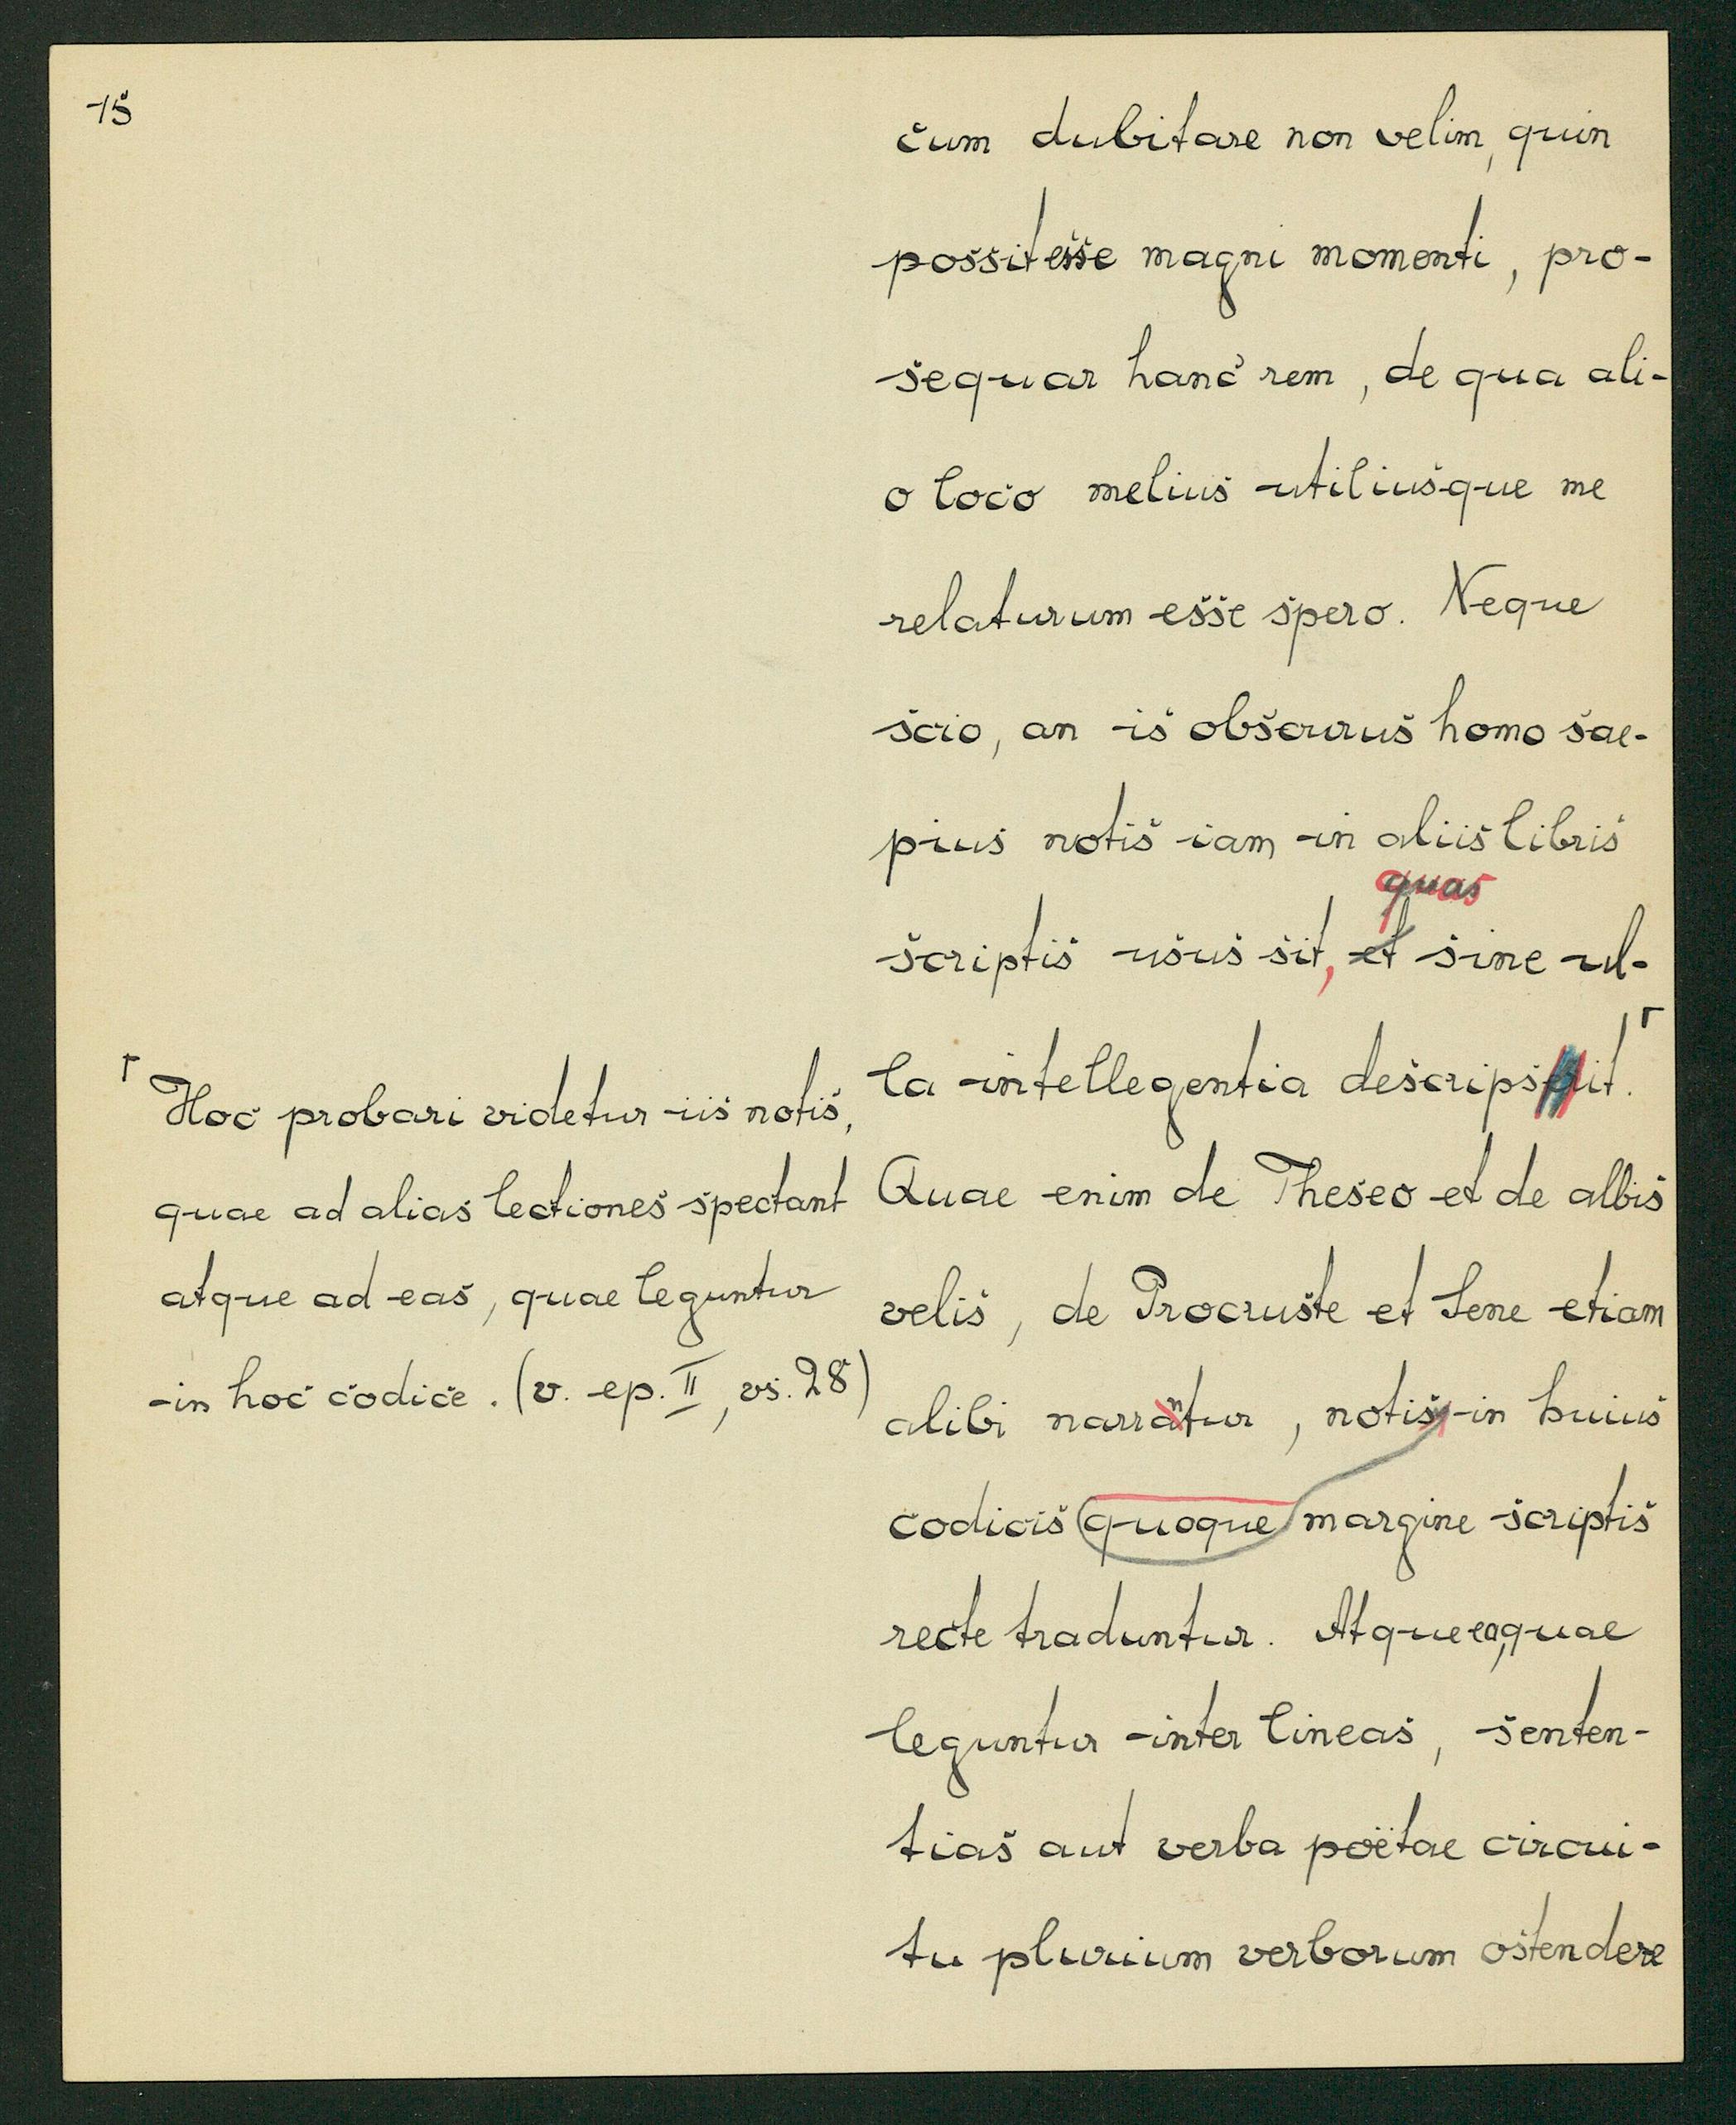 15
cum dubitare non velim, quin
possit esse magni momenti, pro-
sequar hanc rem, de qua ali-
o loco melius utiliusque me
relaturum esse spero. Neque
scio, an is obscurus homo sae-
pius notis iam in aliis libris
quas
scriptis usus sit, et sine ul-
la intellegentia descripserit.┌
Quae enim de Theseo et de albis
velis, de Procruste et Sene etiam
alibi narrantur, notis in huius
codicis quoque margine scriptis
recte traduntur. Atque ea, quae
leguntur inter lineas, senten-
tias aut verba poëtae circui-
tu plurium verborum ostendere
┌ Hoc probari videtur iis notis,
quae ad alias lectiones spectant
atque ad eas, quae leguntur
in hoc codice. (v. ep. II, vs. 28)